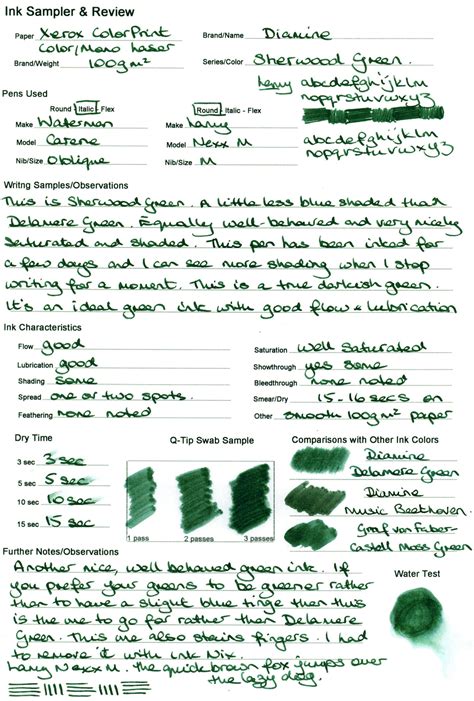 Ink Sampler & Review
Paper Xerox ColorPrint Brand/Name Diamine
Color/Mono Laser
Brand/Weight 100gm² Series/Color Sherwood Green.
Lamy abcdefghijklm
nopqrstuvwxyz
Pens Used
Round - Italic - Flex Round - Italic - Flex
Make Waterman Make Lamy
Model Carene Model Nexx M
Nib/Size Oblique Nib/Size M
abcdefghijklm
nopqrstuvwxyz
Writng Samples/Observations
This is Sherwood Green. A little less blue shaded than
Delamere Green. Equally well-behaved and very nicely
saturated and shaded. This pen has been inked for
a few days and I can see more shading when I stop
writing for a moment. This is a true darkish green.
It's an ideal green ink with good flow & lubrication
Ink Characteristics
Flow good Saturation Well Saturated
Lubrication good Showthrough yes some
Shading Some Bleedthrough none noted
Spread one or two spots. Smear/Dry 15-16secs on
Feathering none noted Other smooth 100gm² paper
Dry Time Q-Tip Swab Sample Comparisons with Other Ink Colors
3 sec 3 sec
5 sec 5 sec
10 sec 10 sec
15 sec 15 sec
1 pass 2 passes 3 passes
Diamine
Delamere Green
Diamine
Music Beethoven
Graf von Faber-
Castell Moss Green
Further Notes/Observations Water Test
Another nice, well behaved green ink. If
you prefer your greens to be greener rather
than to have a slight blue tinge then this
is the one to go for rather than Delamere
Green. This one also stains fingers. I had
to remove it with Ink Nix.
Lamy Nexx M. the quick brown fox jumps over
the lazy dog.